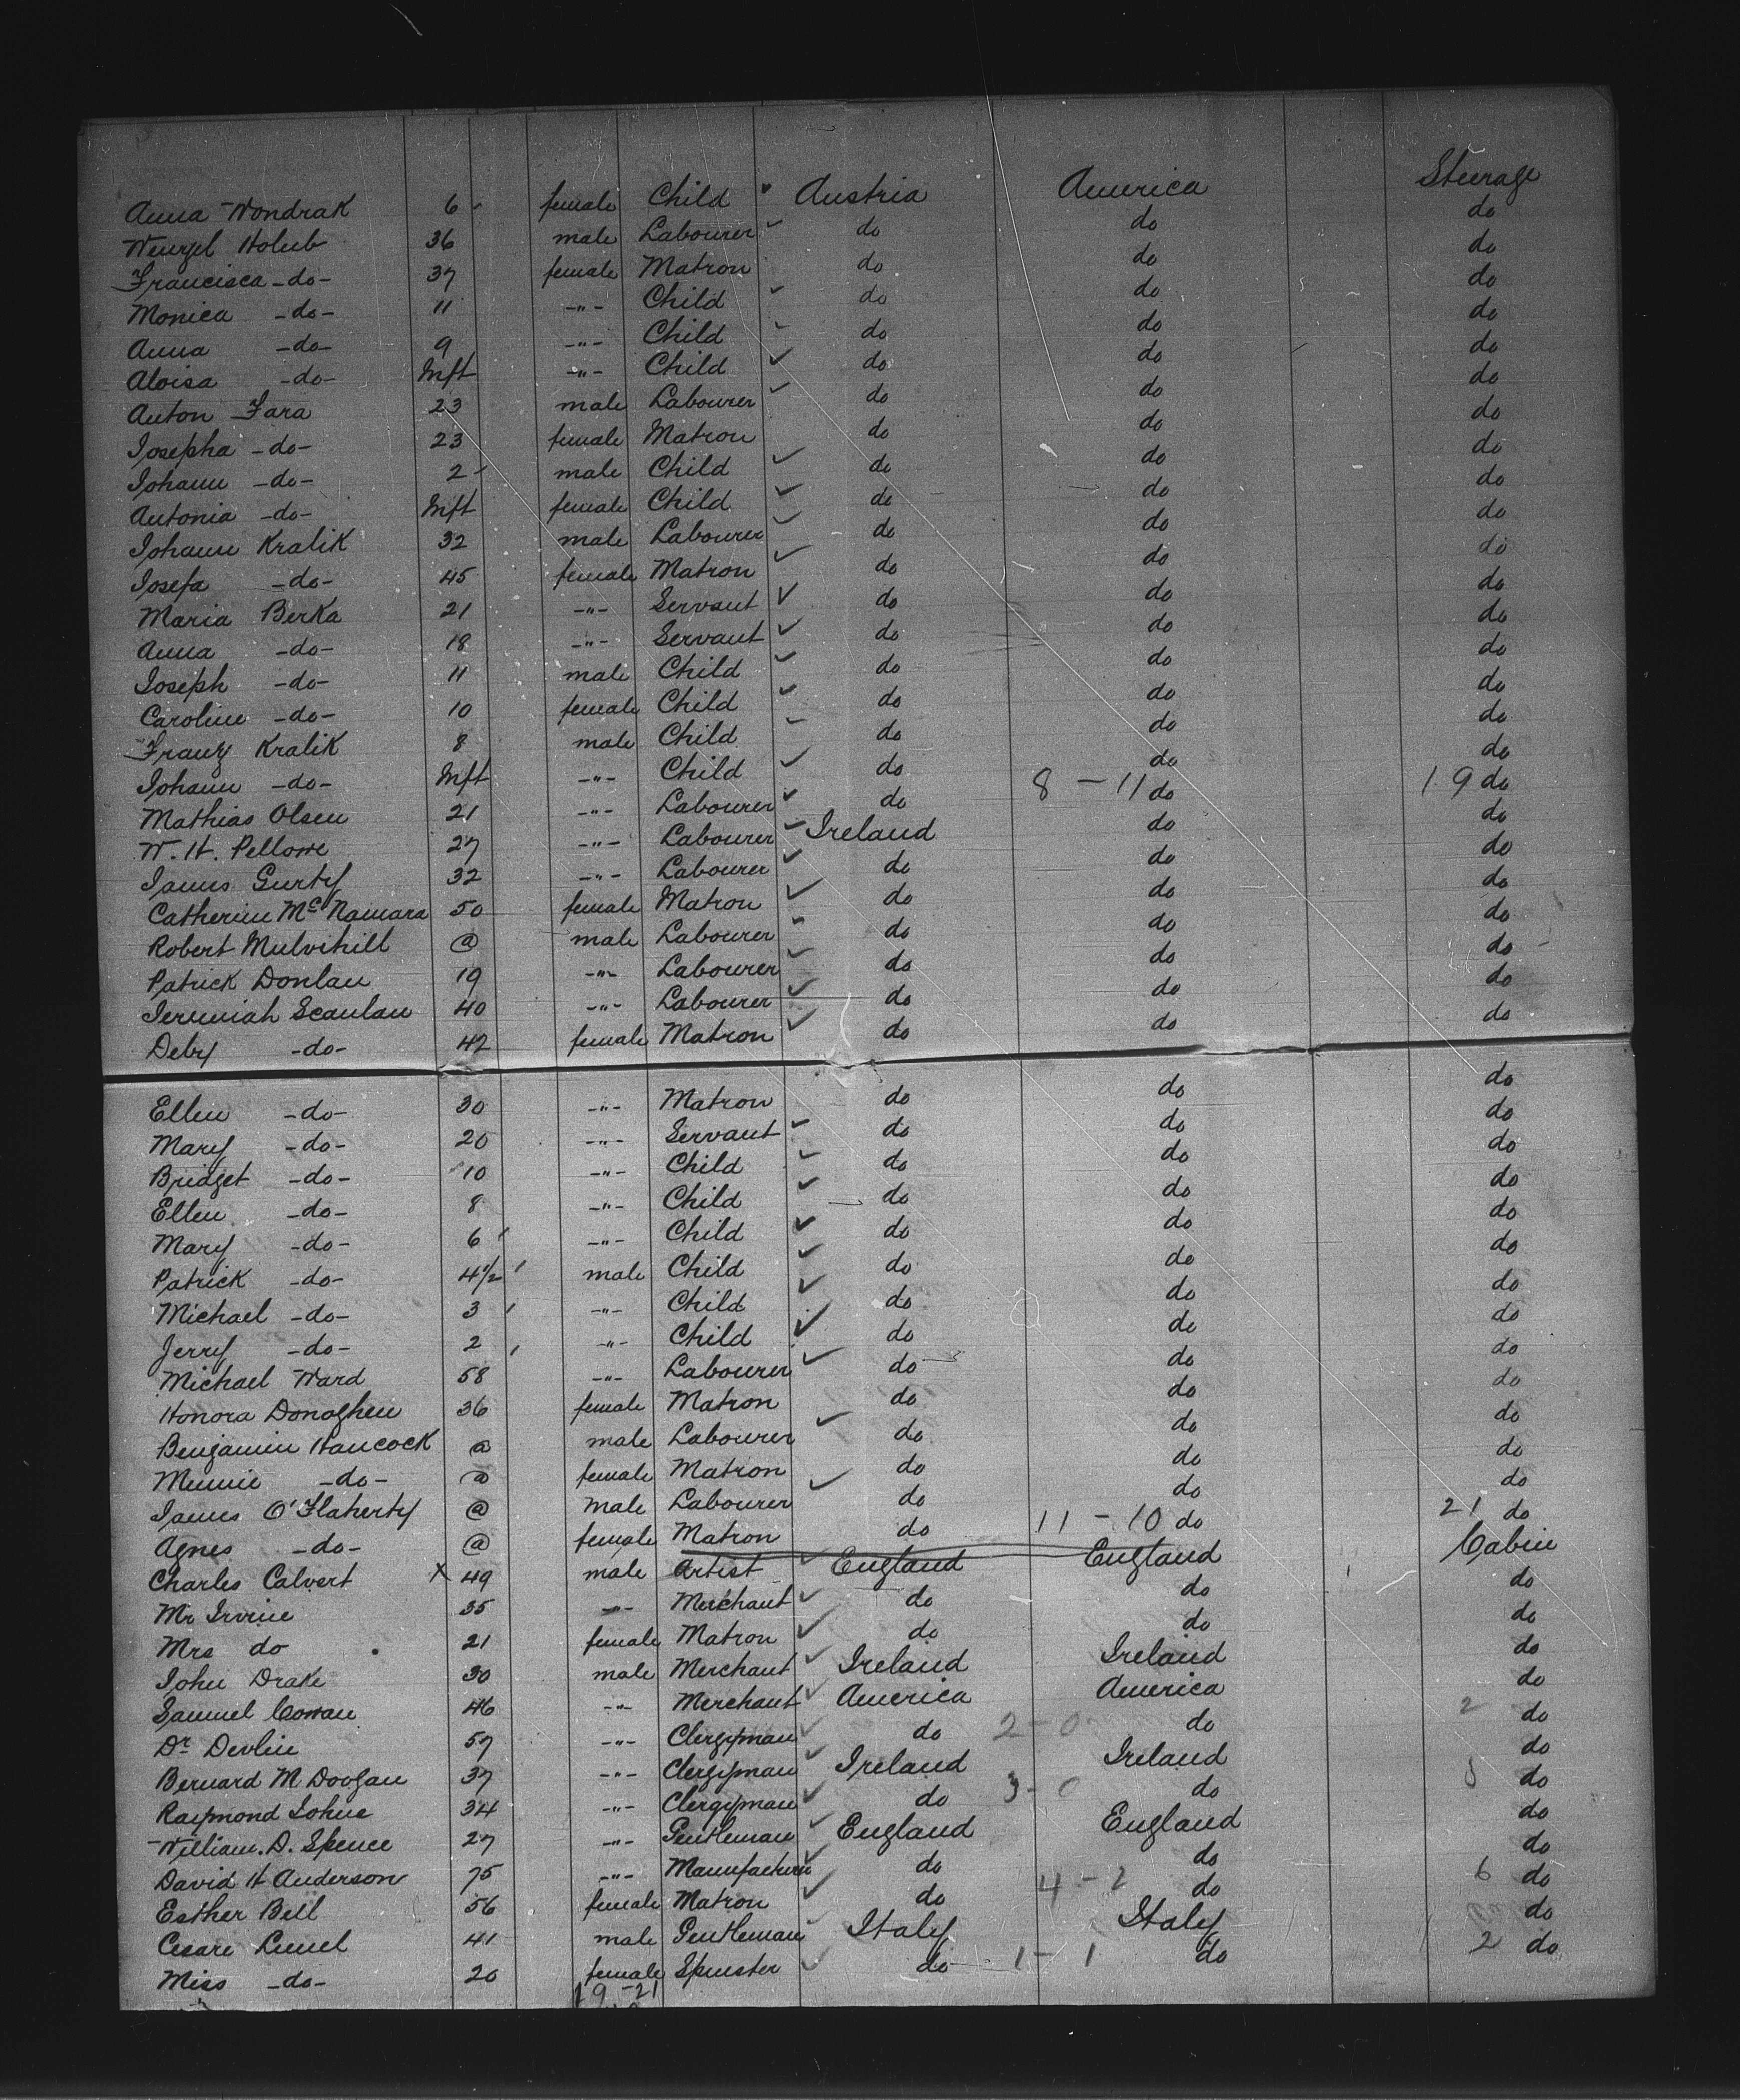 Anna Wondrak 6 female Child Austria America Steerage
Wenzel Holub 36 male Labourer do do do
Francisca -do- 37 female Matron do do do
Monica -do- 11 -"- Child do do do
Anna -do- 9 -"- Child do do do
Aloisa -do- Inft -"- Child do do do
Anton Fara 23 male Labourer do do do
Josepha -do- 23 female Matron do do do
Johann -do- 2 male Child do do do
Antonia -do- Inft female Child do do do
Johann Kralik 32 male Labourer do do do
Josefa -do- 45 female Matron do do do
Maria Berka 21 -"- Servant do do do
Anna -do- 18 -"- Servant do do do
Joseph -do- 11 male Child do do do
Caroline -do- 10 female Child do do do
Franz Kralik 8 male Child do do do
Johann -do- Inft -"- Child do do do
Mathias Olsen 21 -"- Labourer do 8 - 11 do 19 do
W. H. Pellowe 27 -"- Labourer Ireland do do
James Gurty 32 -"- Labourer do do do
Catherine McNamara 50 female Matron do do do
Robert Mulvihill @ male Labourer do do do
Patrick Donlan 19 -"- Labourer do do do
Jeremiah Scanlan 40 -"- Labourer do do do
Deby -do- 42 female Matron do do do
Ellen -do- 30 -"- Matron do do do
Mary -do- 20 -"- Servant do do do
Bridget -do- 10 -"- Child do do do
Ellen -do- 8 -"- Child do do do
Mary -do- 6 -"- Child do do do
Patrick -do- 4½ male Child do do do
Michael -do- 3 -"- Child do do do
Jerry -do- 2 -"- Child do do do
Michael Ward 58 -"- Labourer do do do
Honora Donoghue 36 female Matron do do do
Benjamin Hancock @ male Labourer do do do
Minnie -do- @ female Matron do do do
James O'Flaherty @ male Labourer do do do
Agnes -do- @ female Matron do 11 - 10 do 21 do
Charles Calvert x 49 male Artist England England Cabin
Mr Irvine 35 -"- Merchant do do do
Mrs do 21 female Matron do do do
John Drake 30 male Merchant Ireland Ireland do
Samuel Cowan 46 -"- Merchant America America do
Dr Devlin 57 -"- Clergyman do 2 - 0 do 2 do
Bernard M 37 -"- Clergyman Ireland Ireland do
Raymond 34 -"- Clergyman do 3 - 0 do 3 do
William. D. Spence 27 -"- Gentleman England England do
David H Anderson 75 -"- Manufacturer do do do
Esther Bell 56 female Matron do 4 - 2 do 6 do
Cesare 41 male Gentleman Italy Italy do
Miss -do- 20 female Spinster do 1 - 1 do 2 do
19 - 21